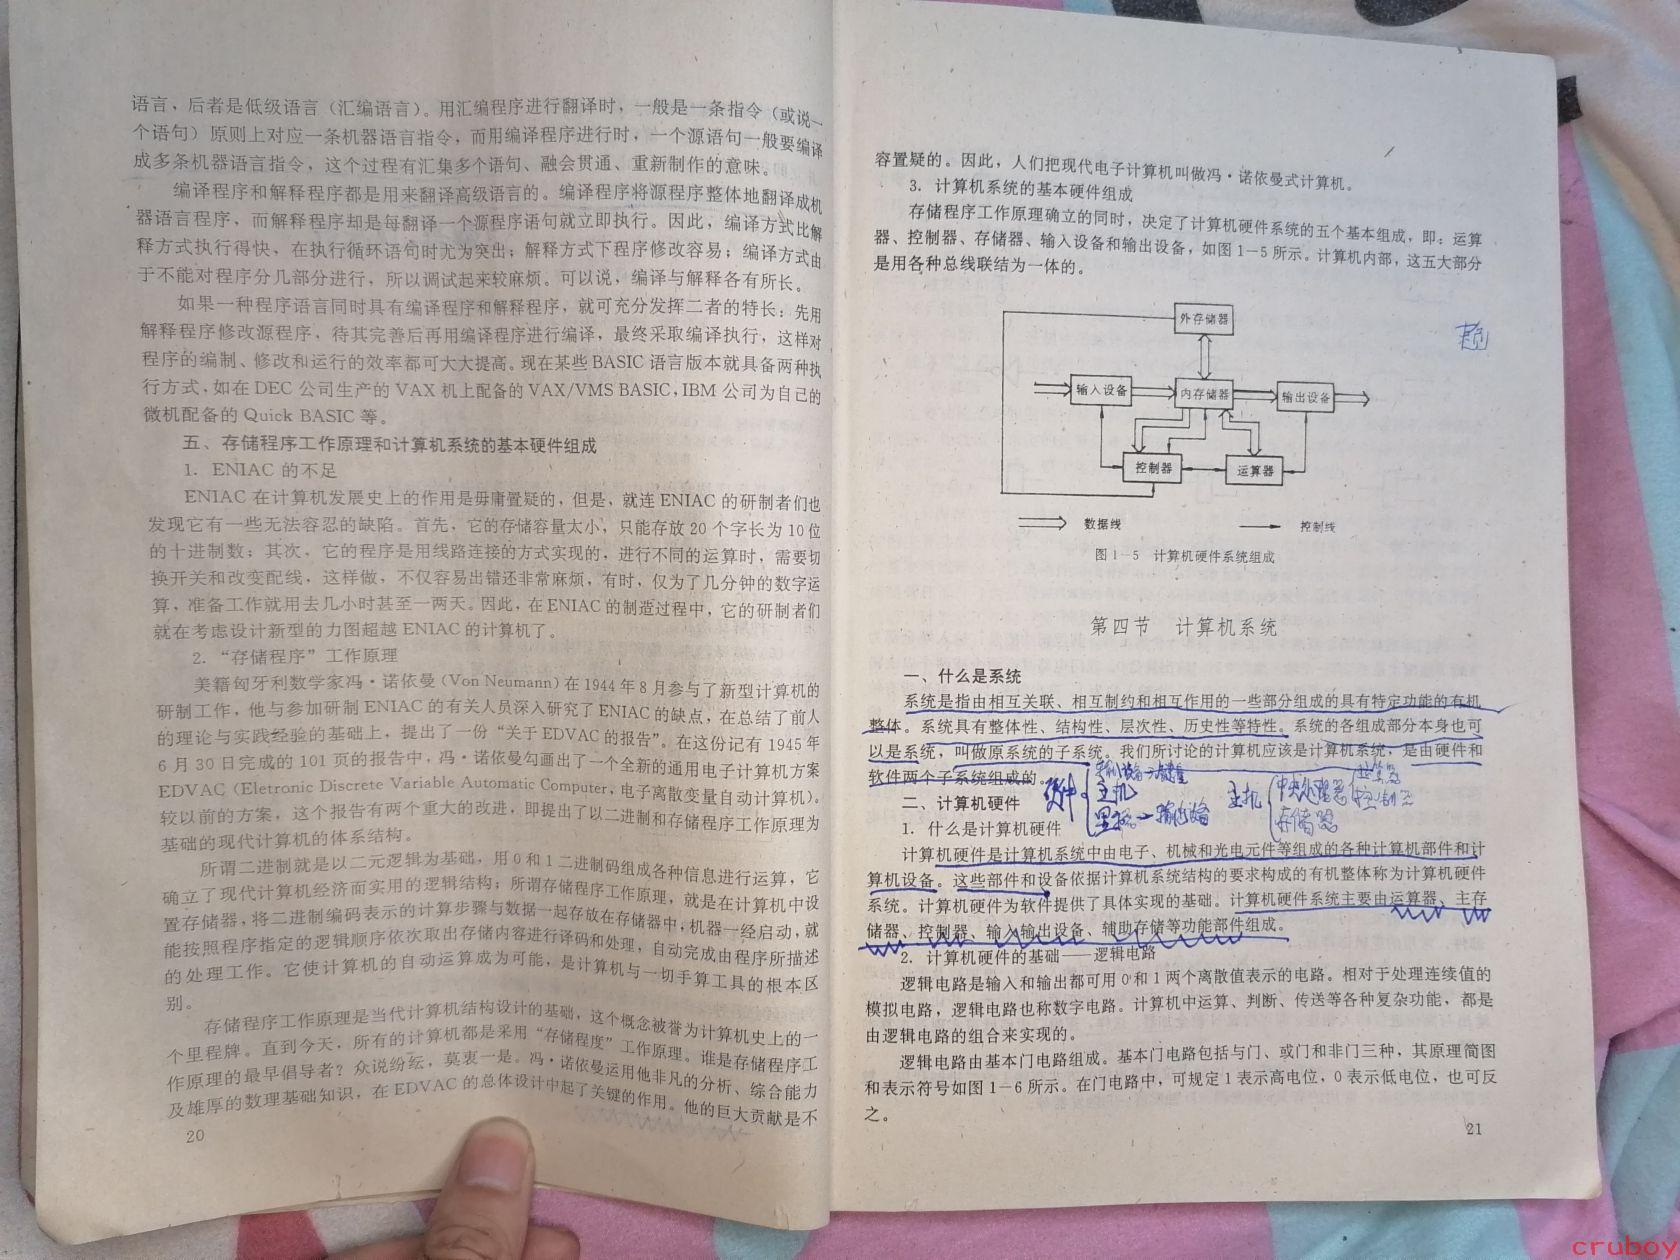 语言、后者是低级语言（汇编语言）。用汇编程序进行翻译时，一般是一条指令（或说一
个语句）原则上对应一条机器语言指令，而用编译程序进行时，一个源语句一般要编译
成多条机器语言指令，这个过程有汇集多个语句、融会贯通、重新制作的意味。
编译程序和解释程序都是用来翻译高级语言的。编译程序将源程序整体地翻译成机
器语言程序，而解释程序却是每翻译一个源程序语句就立即执行。因此，编译方式比解
释方式执行得快，在执行循环语句时尤为突出；解释方式下程序修改容易；编译方式由
于不能对程序分几部分进行，所以调试起来较麻烦。可以说，编译与解释各有所长。
如果一种程序语言同时具有编译程序和解释程序，就可充分发挥二者的特长：先用
解释程序修改源程序，待其完善后再用编译程序进行编译，最终采取编译执行，这样对
程序的编制、修改和运行的效率都可大大提高。现在某些 BASIC 语言版本就具备两种执
行方式，如在 DEC 公司生产的 VAX 机上配备的 VAX/VMS BASIC，IBM 公司为自己的
微机配备的 Quick BASIC 等。
五、存储程序工作原理和计算机系统的基本硬件组成
1. ENIAC 的不足
ENIAC 在计算机发展史上的作用是毋庸置疑的，但是，就连 ENIAC 的研制者们也
发现它有一些无法容忍的缺陷。首先，它的存储容量太小，只能存放 20 个字长为 10 位
的十进制数；其次，它的程序是用线路连接的方式实现的，进行不同的运算时，需要切
换开关和改变配线，这样做，不仅容易出错还非常麻烦，有时，仅为了几分钟的数字运
算，准备工作就用去几小时甚至一两天。因此，在 ENIAC 的制造过程中，它的研制者们
就在考虑设计新型的力图超越 ENIAC 的计算机了。
2. “存储程序”工作原理
美籍匈牙利数学家冯·诺依曼（Von Neumann）在 1944 年 8 月参与了新型计算机的
研制工作，他与参加研制 ENIAC 的有关人员深入研究了 ENIAC 的缺点，在总结了前人
的理论与实践经验的基础上，提出了一份“关于 EDVAC 的报告”。在这份记有 1945 年
6 月 30 日完成的 101 页的报告中，冯·诺依曼勾画出了一个全新的通用电子计算机方案
EDVAC（Eletronic Discrete Variable Automatic Computer，电子离散变量自动计算机）。
较以前的方案，这个报告有两个重大的改进，即提出了以二进制和存储程序工作原理为
基础的现代计算机的体系结构。
所谓二进制就是以二元逻辑为基础，用 0 和 1 二进制码组成各种信息进行运算，它
确立了现代计算机经济而实用的逻辑结构；所谓存储程序工作原理，就是在计算机中设
置存储器，将二进制编码表示的计算步骤与数据一起存放在存储器中，机器一经启动，就
能按照程序指定的逻辑顺序依次取出存储内容进行译码和处理，自动完成由程序所描述
的处理工作。它使计算机的自动运算成为可能，是计算机与一切手算工具的根本区
别。
存储程序工作原理是当代计算机结构设计的基础，这个概念被誉为计算机史上的一
个里程牌。直到今天，所有的计算机都是采用“存储程度”工作原理。谁是存储程序工
作原理的最早倡导者？众说纷纭，莫衷一是。冯·诺依曼运用他非凡的分析、综合能力
及雄厚的数理基础知识，在 EDVAC 的总体设计中起了关键的作用。他的巨大贡献是不
20
容置疑的。因此，人们把现代电子计算机叫做冯·诺依曼式计算机。
3. 计算机系统的基本硬件组成
存储程序工作原理确立的同时，决定了计算机硬件系统的五个基本组成，即：运算
器、控制器、存储器、输入设备和输出设备，如图 1—5 所示。计算机内部，这五大部分
是用各种总线联结为一体的。
外存储器
输入设备 内存储器 输出设备
控制器 运算器
数据线 控制线
图 1—5 计算机硬件系统组成
第四节 计算机系统
一、什么是系统
系统是指由相互关联、相互制约和相互作用的一些部分组成的具有特定功能的有机
整体。系统具有整体性、结构性、层次性、历史性等特性。系统的各组成部分本身也可
以是系统，叫做原系统的子系统。我们所讨论的计算机应该是计算机系统，是由硬件和
软件两个子系统组成的。
硬件 主机 主机 中央处理器 运算器 控制器
存储器
二、计算机硬件
1. 什么是计算机硬件
计算机硬件是计算机系统中由电子、机械和光电元件等组成的各种计算机部件和计
算机设备。这些部件和设备依据计算机系统结构的要求构成的有机整体称为计算机硬件
系统。计算机硬件为软件提供了具体实现的基础。计算机硬件系统主要由运算器、主存
储器、控制器、输入输出设备、辅助存储等功能部件组成。
2. 计算机硬件的基础——逻辑电路
逻辑电路是输入和输出都可用 0 和 1 两个离散值表示的电路。相对于处理连续值的
模拟电路，逻辑电路也称数字电路。计算机中运算、判断、传送等各种复杂功能，都是
由逻辑电路的组合来实现的。
逻辑电路由基本门电路组成。基本门电路包括与门、或门和非门三种，其原理简图
和表示符号如图 1—6 所示。在门电路中，可规定 1 表示高电位，0 表示低电位，也可反
之。
21
cruboy